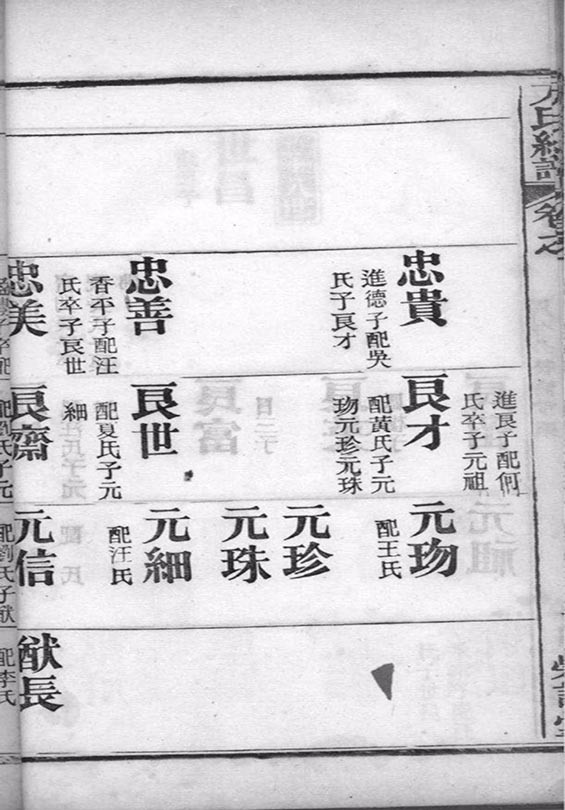 卷之
忠貴
進德子配吳
氏子良才
忠善
香平子配汪
氏卒子良世
忠美
進良子配何
氏卒子元祖
良才
配黃氏子元
元珍元珠
良世
配夏氏子元
細
良齋
配劉氏子元
元
配王氏
元珍
元珠
元細
配汪氏
元信
配劉氏子猷
猷長
配李氏